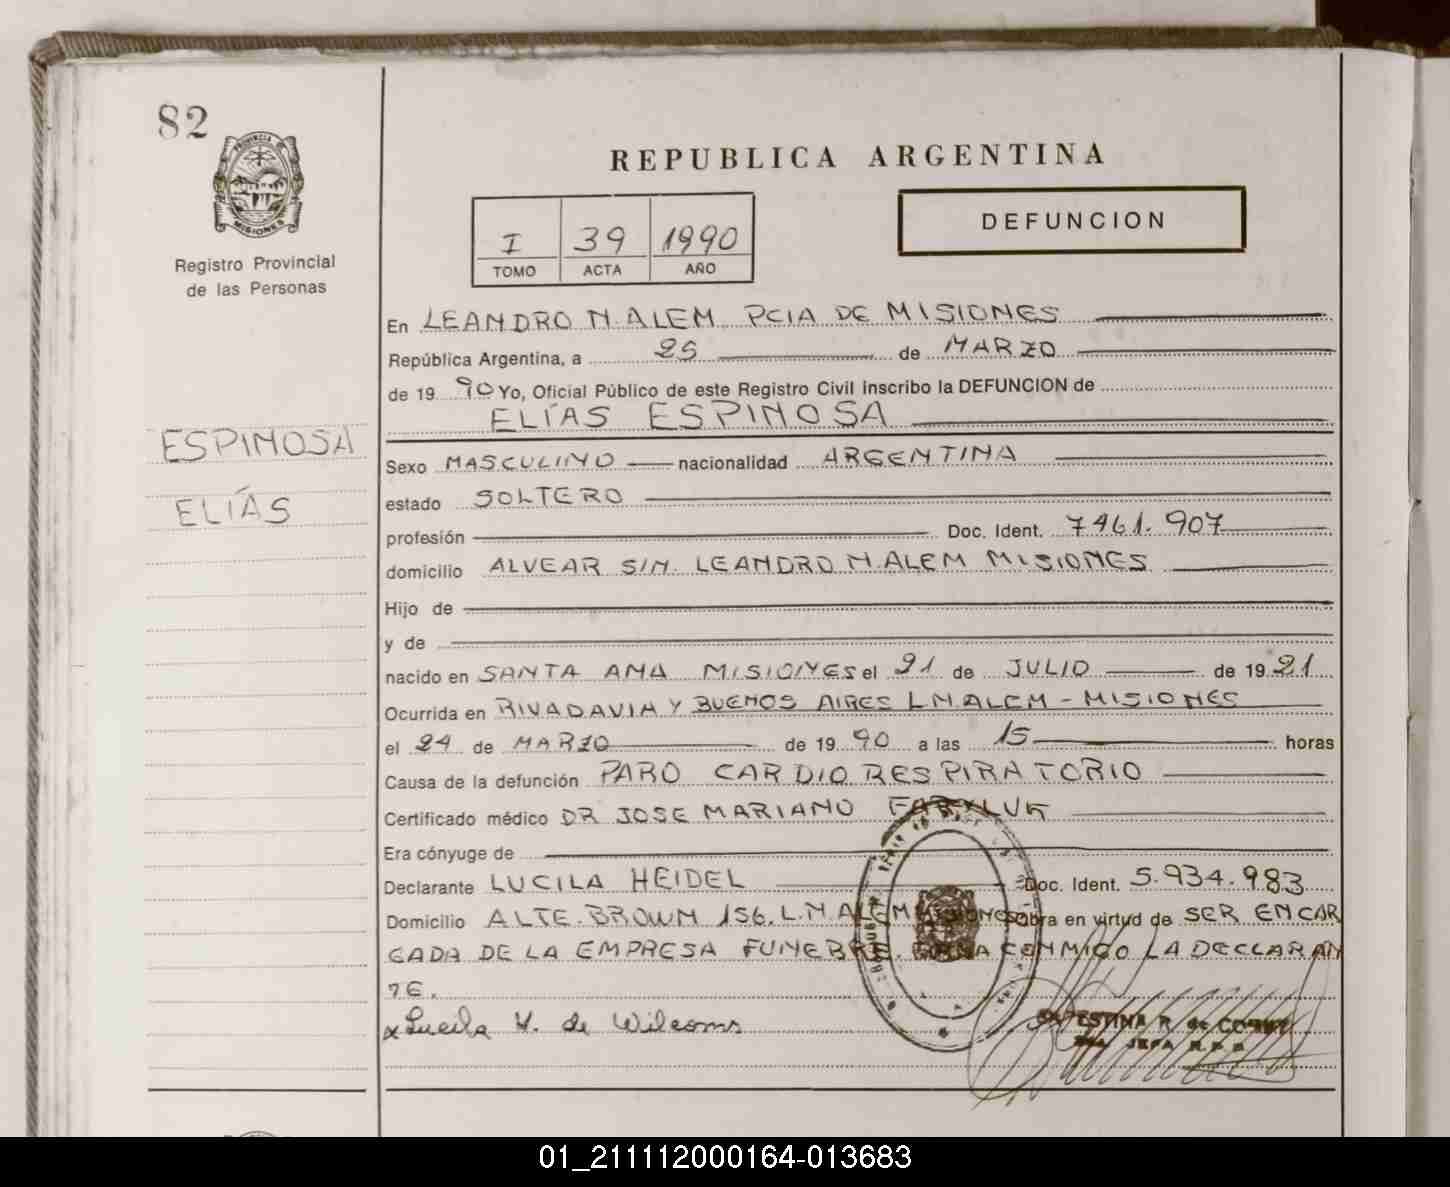 82
PROVINCIA DE
MISIONES
Registro Provincial
de las Personas
ESPINOSA
ELÍAS
REPUBLICA ARGENTINA
I 39 1990
TOMO ACTA AÑO
DEFUNCION
En LEANDRO N. ALEM PCIA DE MISIONES
República Argentina, a 25 de MARZO
de 19 90 Yo, Oficial Público de este Registro Civil inscribo la DEFUNCION de
ELÍAS ESPINOSA
Sexo MASCULINO nacionalidad ARGENTINA
estado SOLTERO
profesión Doc. Ident. 7461.907
domicilio ALVEAR S/N. LEANDRO N. ALEM MISIONES
Hijo de
y de
nacido en SANTA ANA MISIONES el 21 de JULIO de 19 21
Ocurrida en RIVADAVIA Y BUENOS AIRES L.N. ALEM - MISIONES
el 24 de MARZO de 19 90 a las 15 horas
Causa de la defunción PARO CARDIO RESPIRATORIO
Certificado médico DR JOSE MARIANO
Era cónyuge de
Declarante LUCILA HEIDEL Doc. Ident. 5.934.983
Domicilio ALTE. BROWN 156. L.N. ALEM MISIONES Obra en virtud de SER ENCAR
GADA DE LA EMPRESA FUNEBRE. FIRMA CONMIGO LA DECLARAN
TE.
x Lucila H. de
R. de
JEFA
01_211112000164-013683